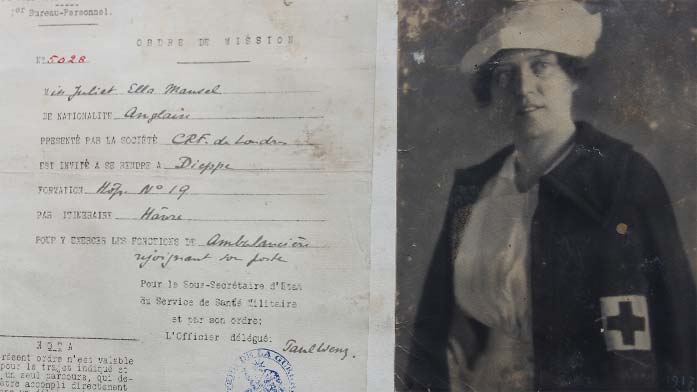 1er Bureau-Personnel.
ORDRE DE MISSION
N° 5028
Miss Juliet Ella Mansel
DE NATIONALITE Anglaise
PRESENTÉ PAR LA SOCIÉTÉ CRF. de Londres
EST INVITÉ A SE RENDRE A Dieppe
FORMATION Hôp. N° 19
PAR ITINERAIRE Hâvre
POUR Y EXERCER LES FONCTIONS DE Ambulancière
rejoignant son poste
Pour le Sous-Secrétaire d'Etat
du Service de Santé Militaire
et par son ordre:
L'Officier délégué:
NOTA
présent ordre n'est valable
pour le trajet indiqué et
un seul parcours, qui de-
être accompli directement
DE LA GUERRE